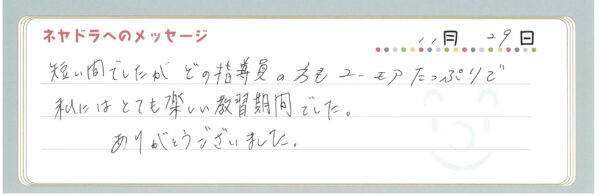 ネヤドラへのメッセージ
11月 29日
短い間でしたが どの指導員の方も ユーモアたっぷりで
私にはとても楽しい教習期間でした。
ありがとうございました。